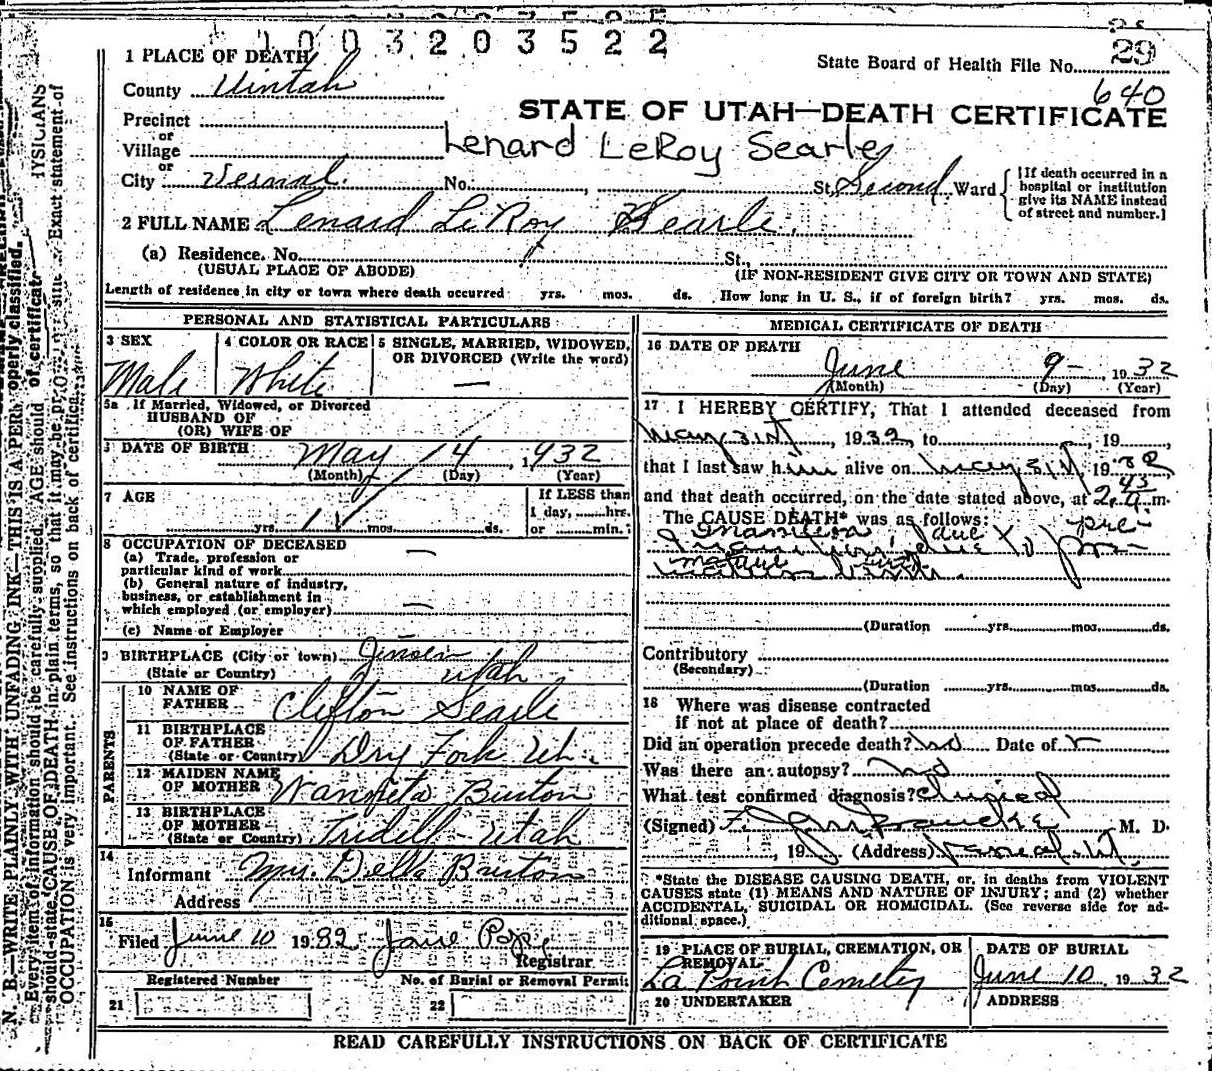 1003203522
1 PLACE OF DEATH
State Board of Health File No. 29
County Uintah
640
STATE OF UTAH—DEATH CERTIFICATE
Precinct
or
Village
Lenard LeRoy Searle
or
City Vernal. No. , St. Second Ward
[If death occurred in a hospital or institution give its NAME instead of street and number.]
2 FULL NAME Lenard LeRoy Searle.
(a) Residence. No. St.,
(USUAL PLACE OF ABODE) (IF NON-RESIDENT GIVE CITY OR TOWN AND STATE)
Length of residence in city or town where death occurred yrs. mos. ds. How long in U. S., if of foreign birth? yrs. mos. ds.
PERSONAL AND STATISTICAL PARTICULARS
3 SEX
Male
4 COLOR OR RACE
White
5 SINGLE, MARRIED, WIDOWED,
OR DIVORCED (Write the word)
—
5a If Married, Widowed, or Divorced
HUSBAND OF
(OR) WIFE OF
DATE OF BIRTH May 14, 1932
(Month) (Day) (Year)
7 AGE
yrs. mos. ds.
If LESS than
1 day, hrs.
or min.?
8 OCCUPATION OF DECEASED
(a) Trade, profession or
particular kind of work —
(b) General nature of industry,
business, or establishment in
which employed (or employer) —
(c) Name of Employer
9 BIRTHPLACE (City or town) Jensen
(State or Country) Utah
PARENTS
10 NAME OF
FATHER Clifton Searle
11 BIRTHPLACE
OF FATHER
(State or Country) Dry Fork Ut.
12 MAIDEN NAME
OF MOTHER Wanieta Burton
13 BIRTHPLACE
OF MOTHER
(State or Country) Tridell Utah
14
Informant Mrs. Della Burton
Address
15
Filed June 10 1932 Jane Pope
Registrar
Registered Number No. of Burial or Removal Permit
21 22
MEDICAL CERTIFICATE OF DEATH
16 DATE OF DEATH
June 9- , 1932
(Month) (Day) (Year)
17 I HEREBY CERTIFY, That I attended deceased from
May 31st, 1932, to , 19 ,
that I last saw him alive on May 31st, 1932
and that death occurred, on the date stated above, at 2.45 a.m.
The CAUSE DEATH* was as follows:
Inanition, due to pre-
mature birth.
(Duration yrs. mos. ds.
Contributory
(Secondary)
(Duration yrs. mos. ds.
18 Where was disease contracted
if not at place of death?
Did an operation precede death? no Date of
Was there an autopsy? no
What test confirmed diagnosis? Clinical
(Signed) M. D.
, 19 (Address) Vernal, Ut.
*State the DISEASE CAUSING DEATH, or, in deaths from VIOLENT
CAUSES state (1) MEANS AND NATURE OF INJURY; and (2) whether
ACCIDENTAL, SUICIDAL OR HOMICIDAL. (See reverse side for ad-
ditional space.)
19 PLACE OF BURIAL, CREMATION, OR
REMOVAL
La Point Cemetery
DATE OF BURIAL
June 10 1932
20 UNDERTAKER ADDRESS
READ CAREFULLY INSTRUCTIONS ON BACK OF CERTIFICATE
N. B.—WRITE PLAINLY WITH UNFADING INK—THIS IS A PERM
Every item of information should be carefully supplied. AGE should
should state CAUSE OF DEATH in plain terms, so that it may be properly classified. Exact statement of
OCCUPATION is very important. See instructions on back of certificate.